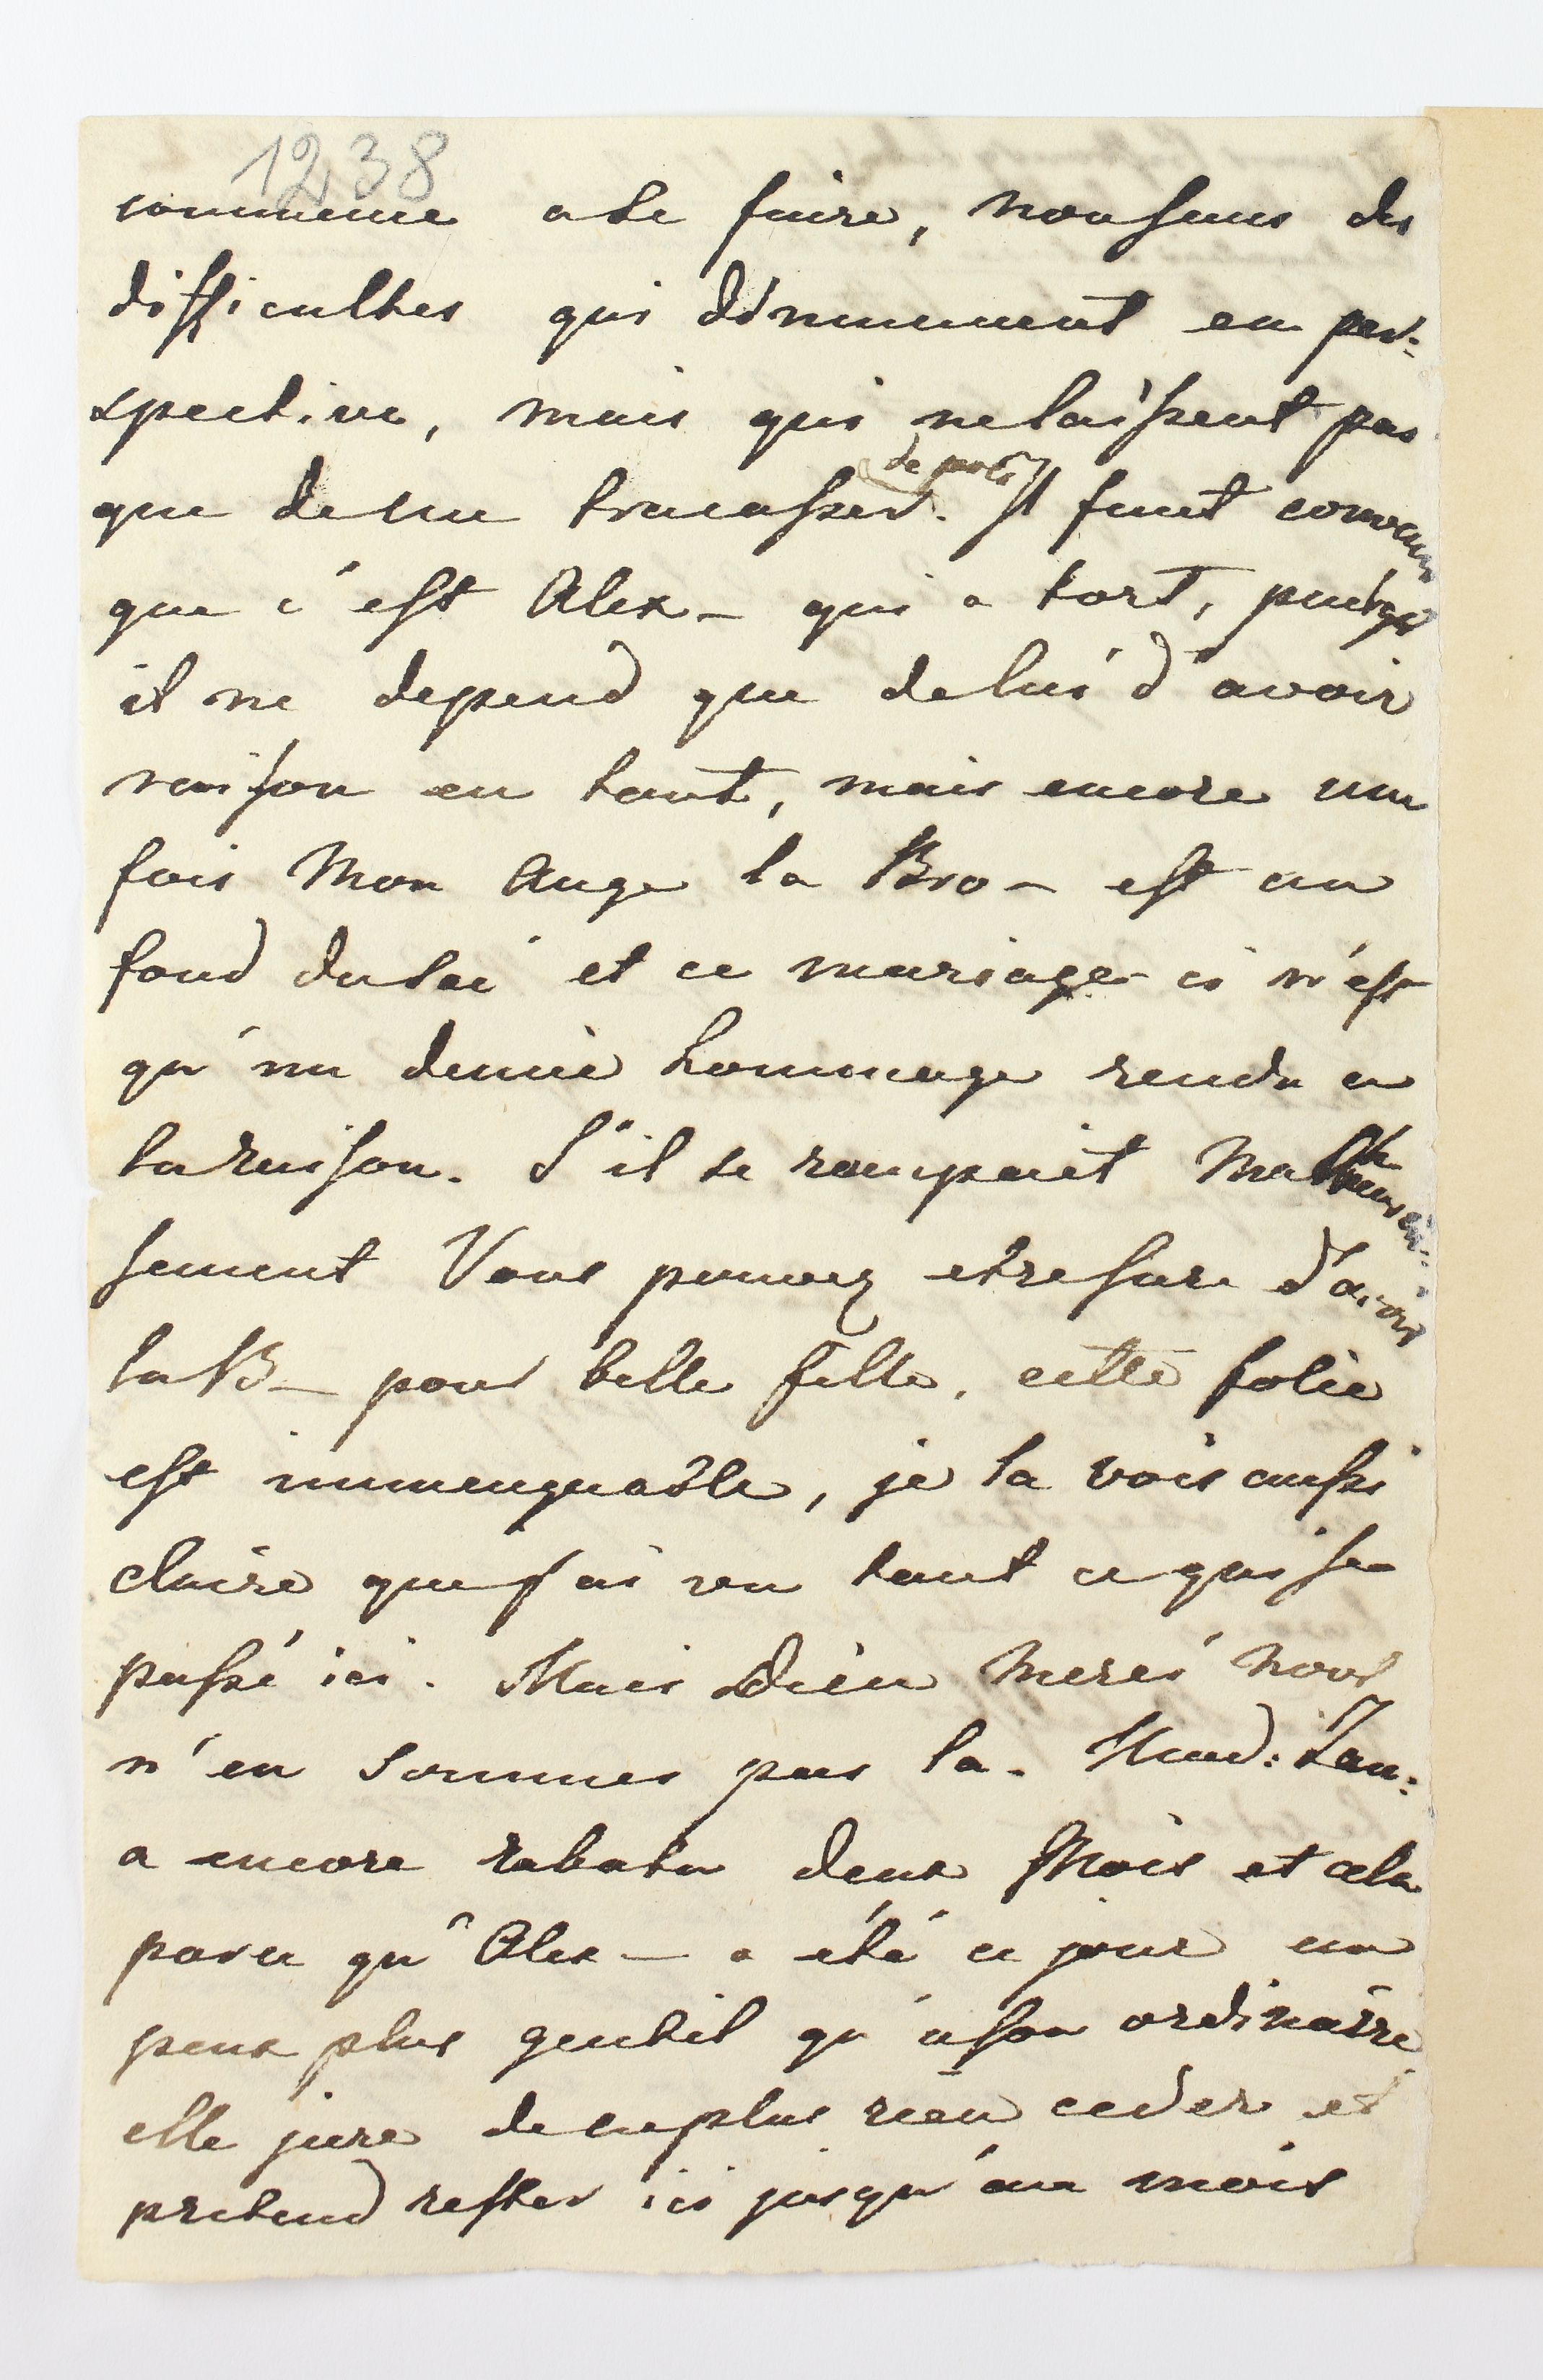 1238
commence a se faire, nonsans des
difficultes qui diminuent en per:
spective, mais qui ne laissent pas
que de me tracasser. Il faut convenir
que c'est Alex- qui a tort, puisqu'
il ne depend que de lui d'avoir
raison en tout, mais encore une
fois Mon Ange la Bro- est au
fond du sac et ce mariage ci n'est
qu'un demie hommage rendu a
la raison. S'il se rompait Malheureu:
sement Vous pouvez etre sure d'avoir
la B- pour belle fille, cette folie
est immenquable, je la vois aussi
claire que j'ai vu tout ce qui se
passé ici. Mais Dieu Merci nous
n'en sommes pas la. Mad: Zan:
a encore rabatu deux Mois et cela
parce qu'Alex- a été ce jour un
peux plus gentil qu'a son ordinaire
elle jure de ne plus rien ceder et
pretend rester ici jusqu'au mois